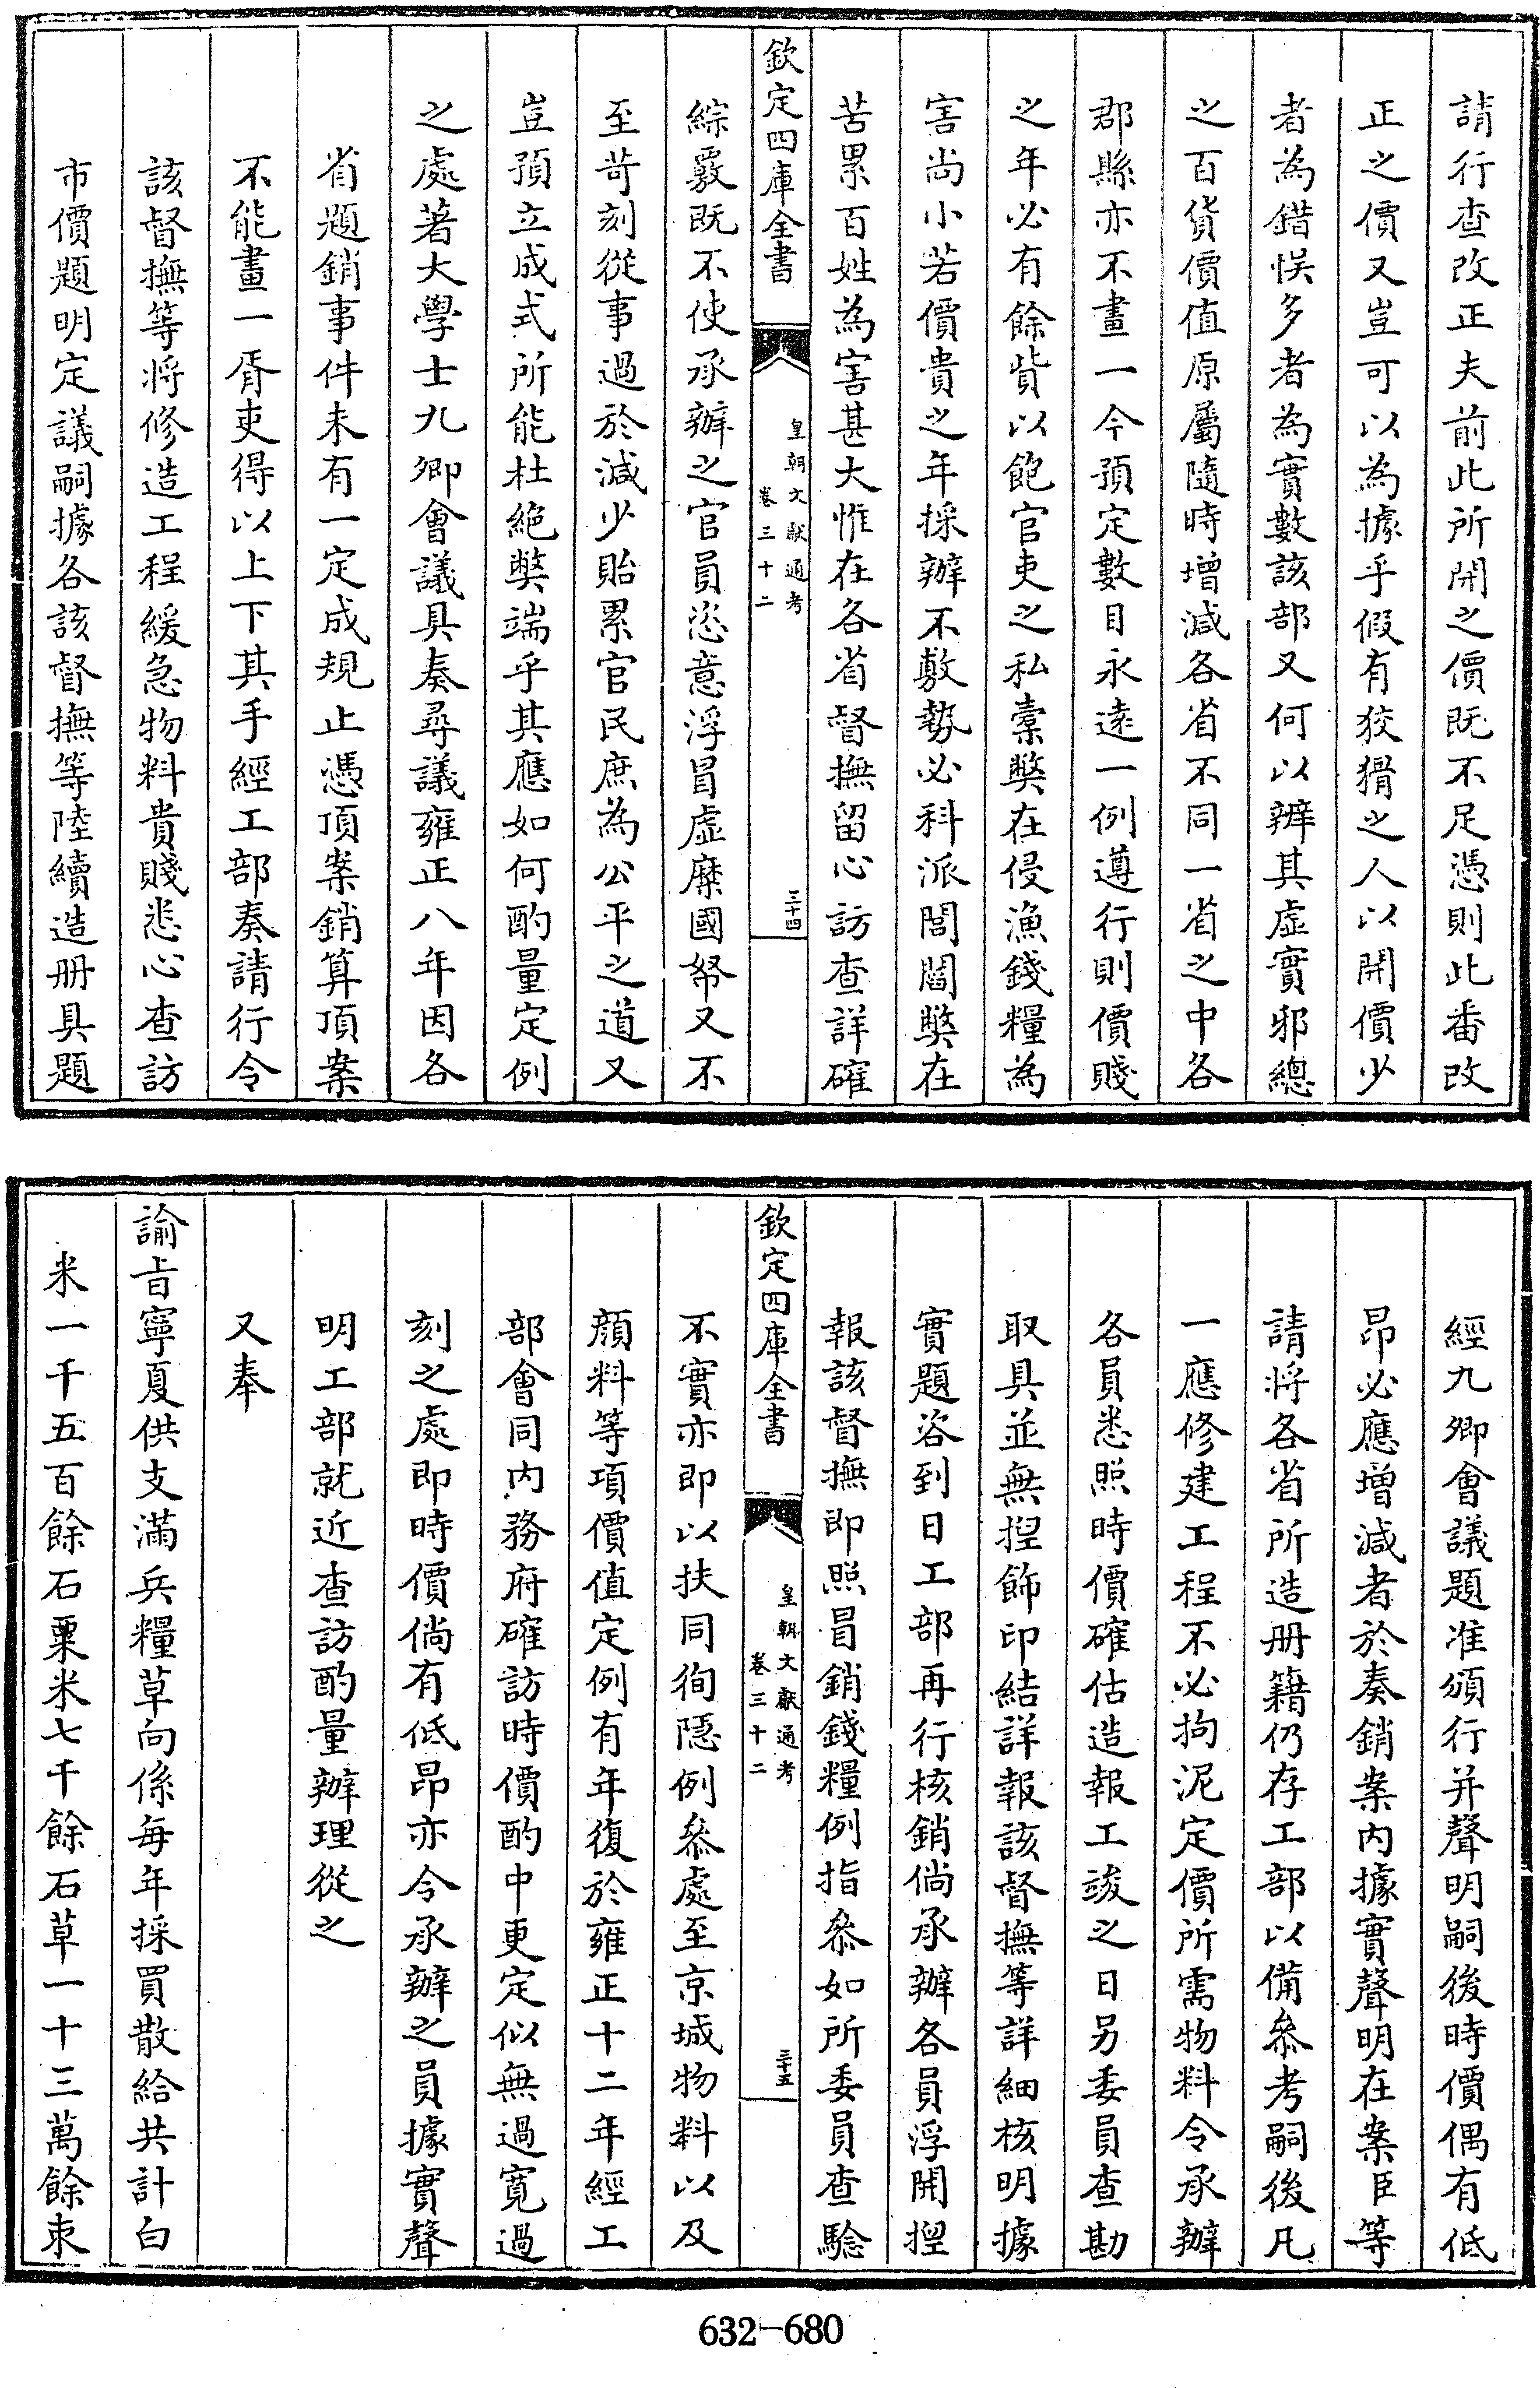 請行查改正夫前此所開之價既不足憑則此番改
正之價又豈可以為據乎假有狡猾之人以開價少
者為錯悞多者為實數該部又何以辨其虛實邪總
之百貨價值原屬隨時增減各省不同一省之中各
郡縣亦不畫一今預定數目永遠一例遵行則價賤
之年必有餘貲以飽官吏之私橐獘在侵漁錢糧為
害尚小若價貴之年採辦不敷勢必科派閭閻獘在
苦累百姓為害甚大惟在各省督撫留心訪查詳確
欽定四庫全書
皇朝文獻通考
卷三十二
三十四
綜覈既不使承辦之官員恣意浮冒虛糜國帑又不
至苛刻從事過於減少貽累官民庶為公平之道又
豈預立成式所能杜絕獘端乎其應如何酌量定例
之處著大學士九卿會議具奏尋議雍正八年因各
省題銷事件未有一定成規止憑頂案銷算頂案
不能畫一胥吏得以上下其手經工部奏請行令
該督撫等將修造工程緩急物料貴賤悉心查訪
市價題明定議嗣據各該督撫等陸續造冊具題
經九卿會議題准頒行并聲明嗣後時價偶有低
昂必應增減者於奏銷案內據實聲明在案臣等
請將各省所造冊籍仍存工部以備叅考嗣後凡
一應修建工程不必拘泥定價所需物料令承辦
各員悉照時價確估造報工竣之日另委員查勘
取具並無揑飾印結詳報該督撫等詳細核明據
實題咨到日工部再行核銷倘承辦各員浮開揑
報該督撫即照冒銷錢糧例指叅如所委員查驗
欽定四庫全書
皇朝文獻通考
卷三十二
三十五
不實亦即以扶同徇隱例叅處至京城物料以及
顏料等項價值定例有年復於雍正十二年經工
部會同內務府確訪時價酌中更定似無過寬過
刻之處即時價倘有低昂亦令承辦之員據實聲
明工部就近查訪酌量辦理從之
又奉
諭旨寧夏供支滿兵糧草向係每年採買散給共計白
米一千五百餘石粟米七千餘石草一十三萬餘束
632-680